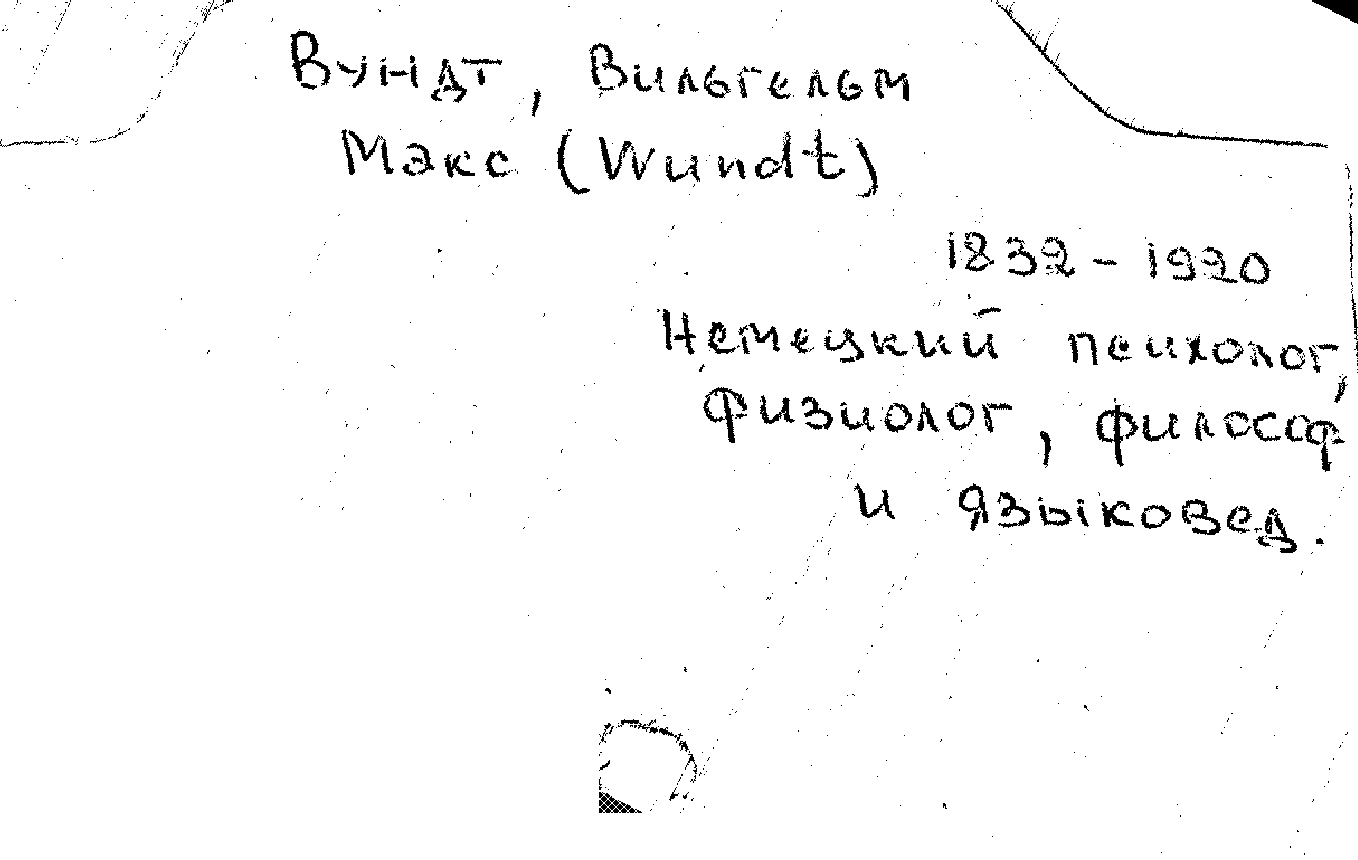 Вундт, Вильгельм
Макс (Wundt)
1832 - 1920
Немецкий психолог,
физиолог, философ
и языковед.